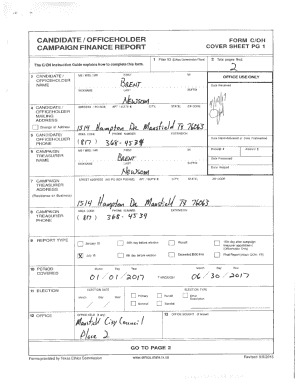 CANDIDATE / OFFICEHOLDER FORM C/OH
CAMPAIGN FINANCE REPORT COVER SHEET PG 1
The C/OH Instruction Guide explains how to complete this form.
1 Filer ID (Ethics Commission Filers) 2 Total pages filed:
2
3 CANDIDATE / OFFICEHOLDER NAME
MS / MRS / MR FIRST MI
Brent
NICKNAME LAST SUFFIX
Newsom
OFFICE USE ONLY
Date Received
4 CANDIDATE / OFFICEHOLDER MAILING ADDRESS
Change of Address
ADDRESS / PO BOX; APT / SUITE #; CITY; STATE; ZIP CODE
1514 Hampton De Mansfield TX 76063
5 CANDIDATE/ OFFICEHOLDER PHONE
AREA CODE PHONE NUMBER EXTENSION
(817) 368-4534
Date Hand-delivered or Date Postmarked
Receipt # Amount $
Date Processed
Date Imaged
6 CAMPAIGN TREASURER NAME
MS / MRS / MR FIRST MI
Brent
NICKNAME LAST SUFFIX
Newsom
7 CAMPAIGN TREASURER ADDRESS
(Residence or Business)
STREET ADDRESS (NO PO BOX PLEASE); APT / SUITE #; CITY; STATE; ZIP CODE
1514 Hampton De Mansfield TX 76063
8 CAMPAIGN TREASURER PHONE
AREA CODE PHONE NUMBER EXTENSION
(817) 368-4534
9 REPORT TYPE
January 15 30th day before election Runoff 15th day after campaign treasurer appointment (Officeholder Only)
July 15 8th day before election Exceeded $500 limit Final Report (Attach C/OH - FR)
10 PERIOD COVERED
Month Day Year Month Day Year
01/01/2017 THROUGH 06/30/2017
11 ELECTION
ELECTION DATE ELECTION TYPE
Month Day Year
Primary Runoff Other Description
General Special
12 OFFICE
OFFICE HELD (if any) 13 OFFICE SOUGHT (if known)
Mansfield City Council
Place 2
GO TO PAGE 2
Forms provided by Texas Ethics Commission www.ethics.state.tx.us